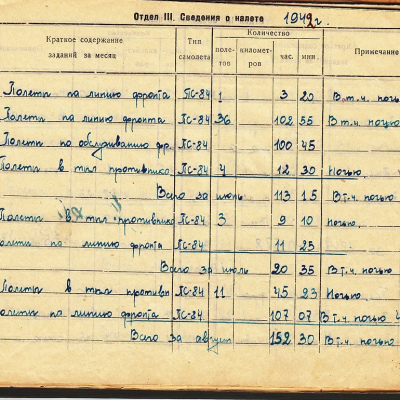 Отдел III. Сведения о налете 1942 г.
Краткое содержание заданий за месяц Тип самолета Количество Примечание
полетов километров час. мин.
Полеты на линию фронта ПС-84 1 3 20 В т.ч. ночью
Полеты на линию фронта ПС-84 36 102 55 В т.ч. ночью
Полеты по обслуживанию фр. ПС-84 100 45
Полеты в тыл противника ПС-84 4 12 30 Ночью.
Всего за 113 15 В т.ч. ночью
Полеты в тыл противника ПС-84 3 9 10 Ночью.
олеты по линию фронта ПС-84 11 25
Всего за июль 20 35 В т.ч. ночью
олеты в тыл противн ПС-84 11 45 23 Ночью
олеты по линию фронта ПС-84 107 07 В т.ч. ночью
Всего за август 152 30 В т.ч. ночью